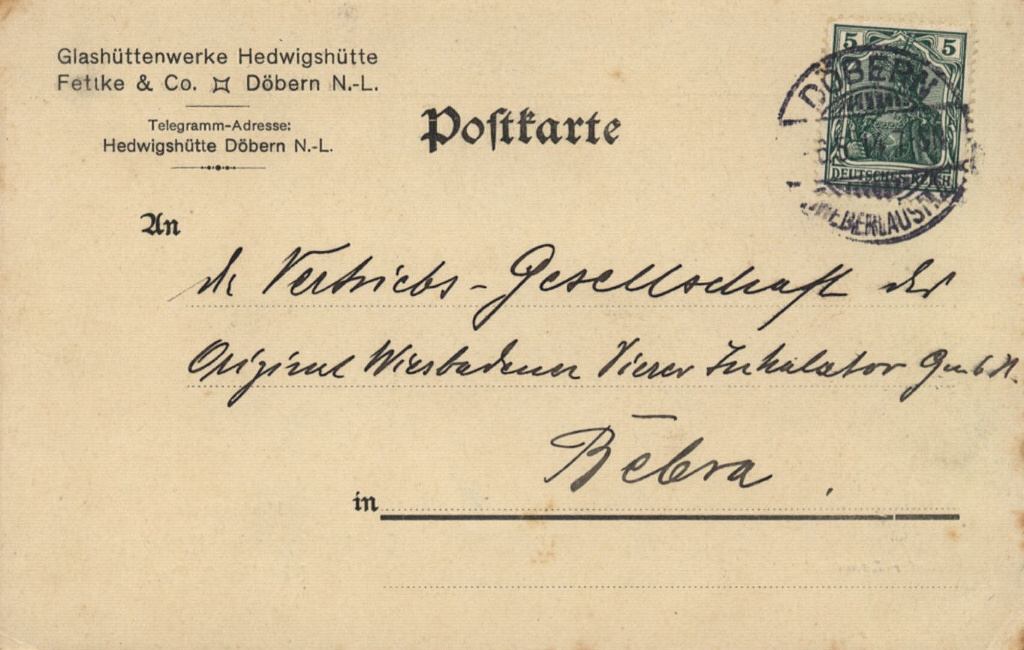 Glashüttenwerke Hedwigshütte
Fettke & Co. Döbern N.-L.
Telegramm-Adresse:
Hedwigshütte Döbern N.-L.
Postkarte
5 5
DEUTSCHES REICH
DÖBERN
(NIEDERLAUSITZ)
An
die Vertriebs-Gesellschaft der
Original Wiesbadener Inhalator GmbH.
in Bebra.